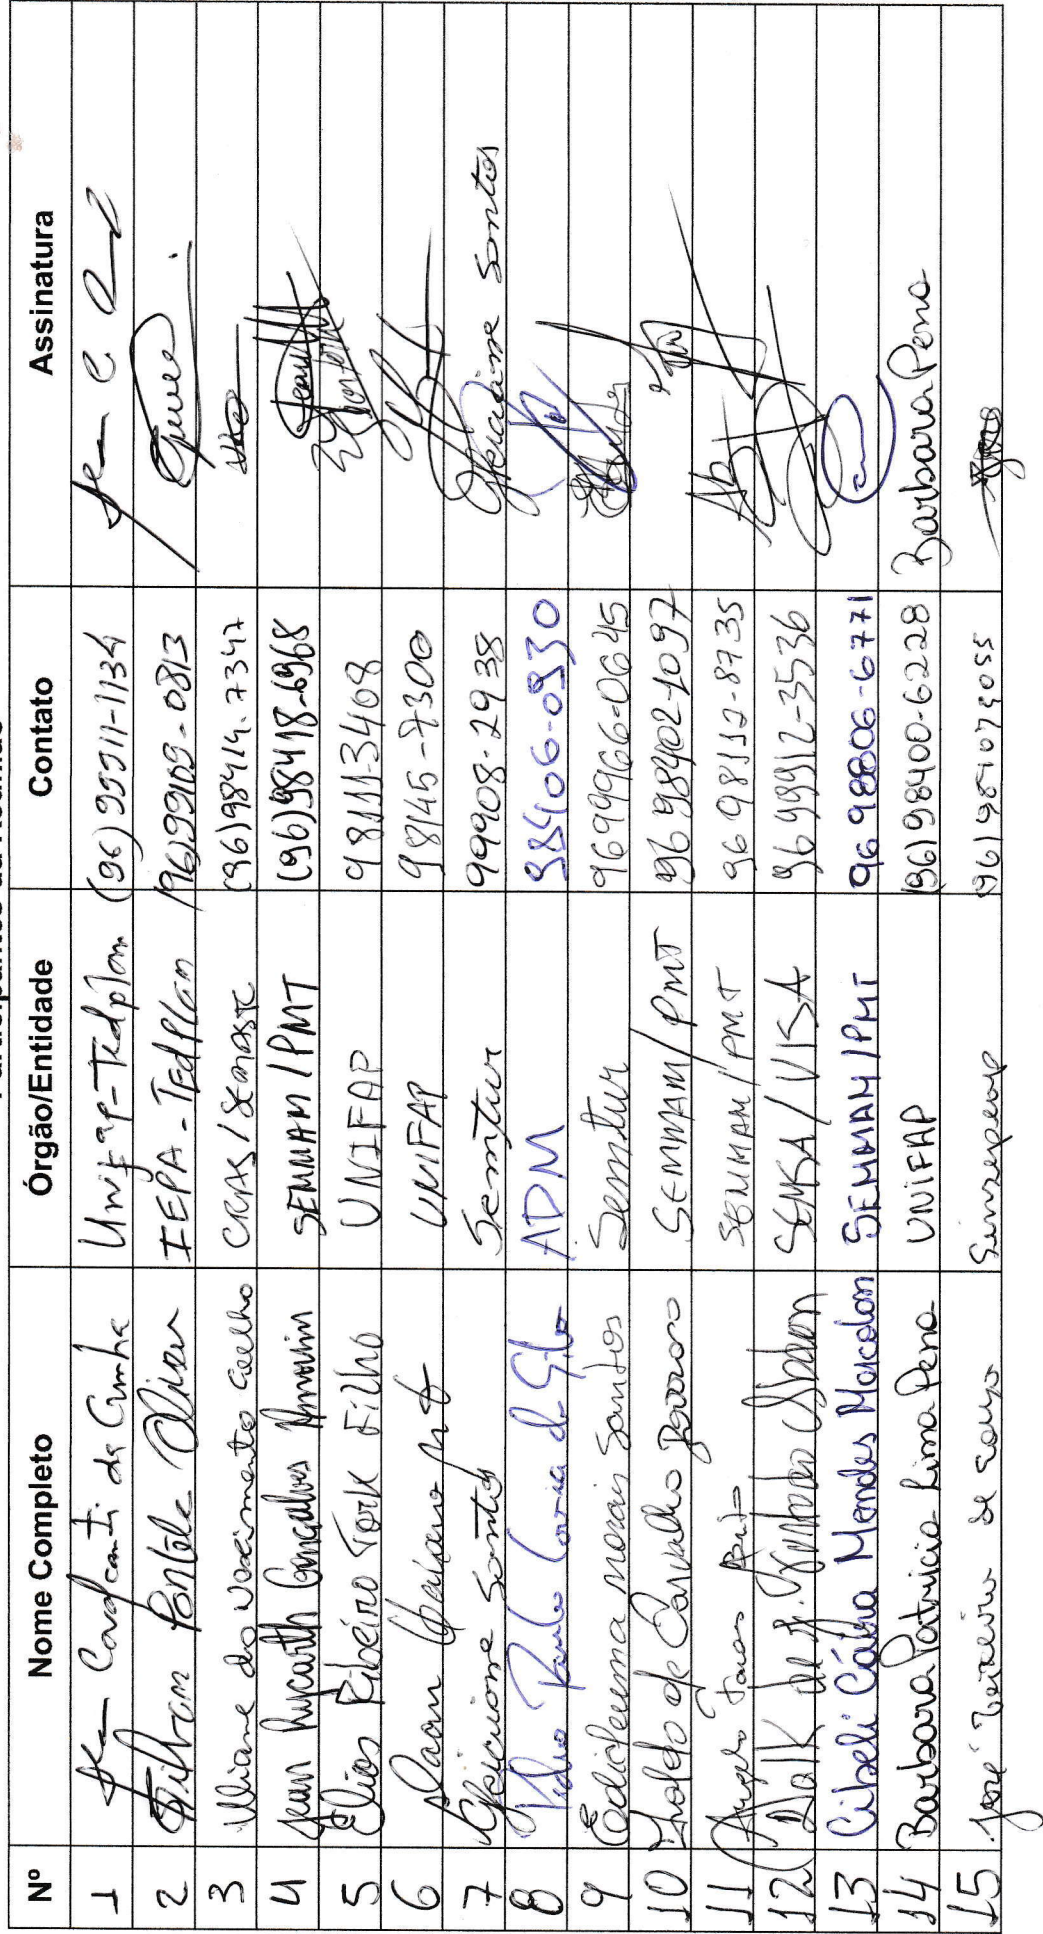 Participantes da reunião
Nº Nome Completo Órgão/Entidade Contato Assinatura
1 Cavalcanti da Cunha Unifap-Tedplan (96) 99911-1134
2 Pontes Oliveira IEPA-Tedplan (96)99109-0813
3 Uliane do Nascimento Coelho CRAS/SEMASTC (96)98414.7347
4 Jean Rycarth Gonçalves Amorim SEMMAM/PMT (96)98418-6968
5 Elias Ribeiro Tork Filho UNIFAP 981113408
6 UNIFAP 98145-7300
7 Gleiciane Santos Semtur 99908-2938 Gleiciane Santos
8 Pedro Paulo Correia da Silva ADM 98406-0930
9 Edicleuma morais Santos Semtur 96 99966-0645
10 de Carvalho SEMMAM/PMT 96 98402-1097
11 Angelo SEMMAM/PMT 96 98112-8735
12 SEMSA/VISA 96 99912-3536
13 Cibeli Cátia Mendes SEMMAM/PMT 96 98806-6771
14 Barbara Patricia Lima Pena UNIFAP (96)98400-6228 Barbara Pena
15 José Teixeira de (96)981072055